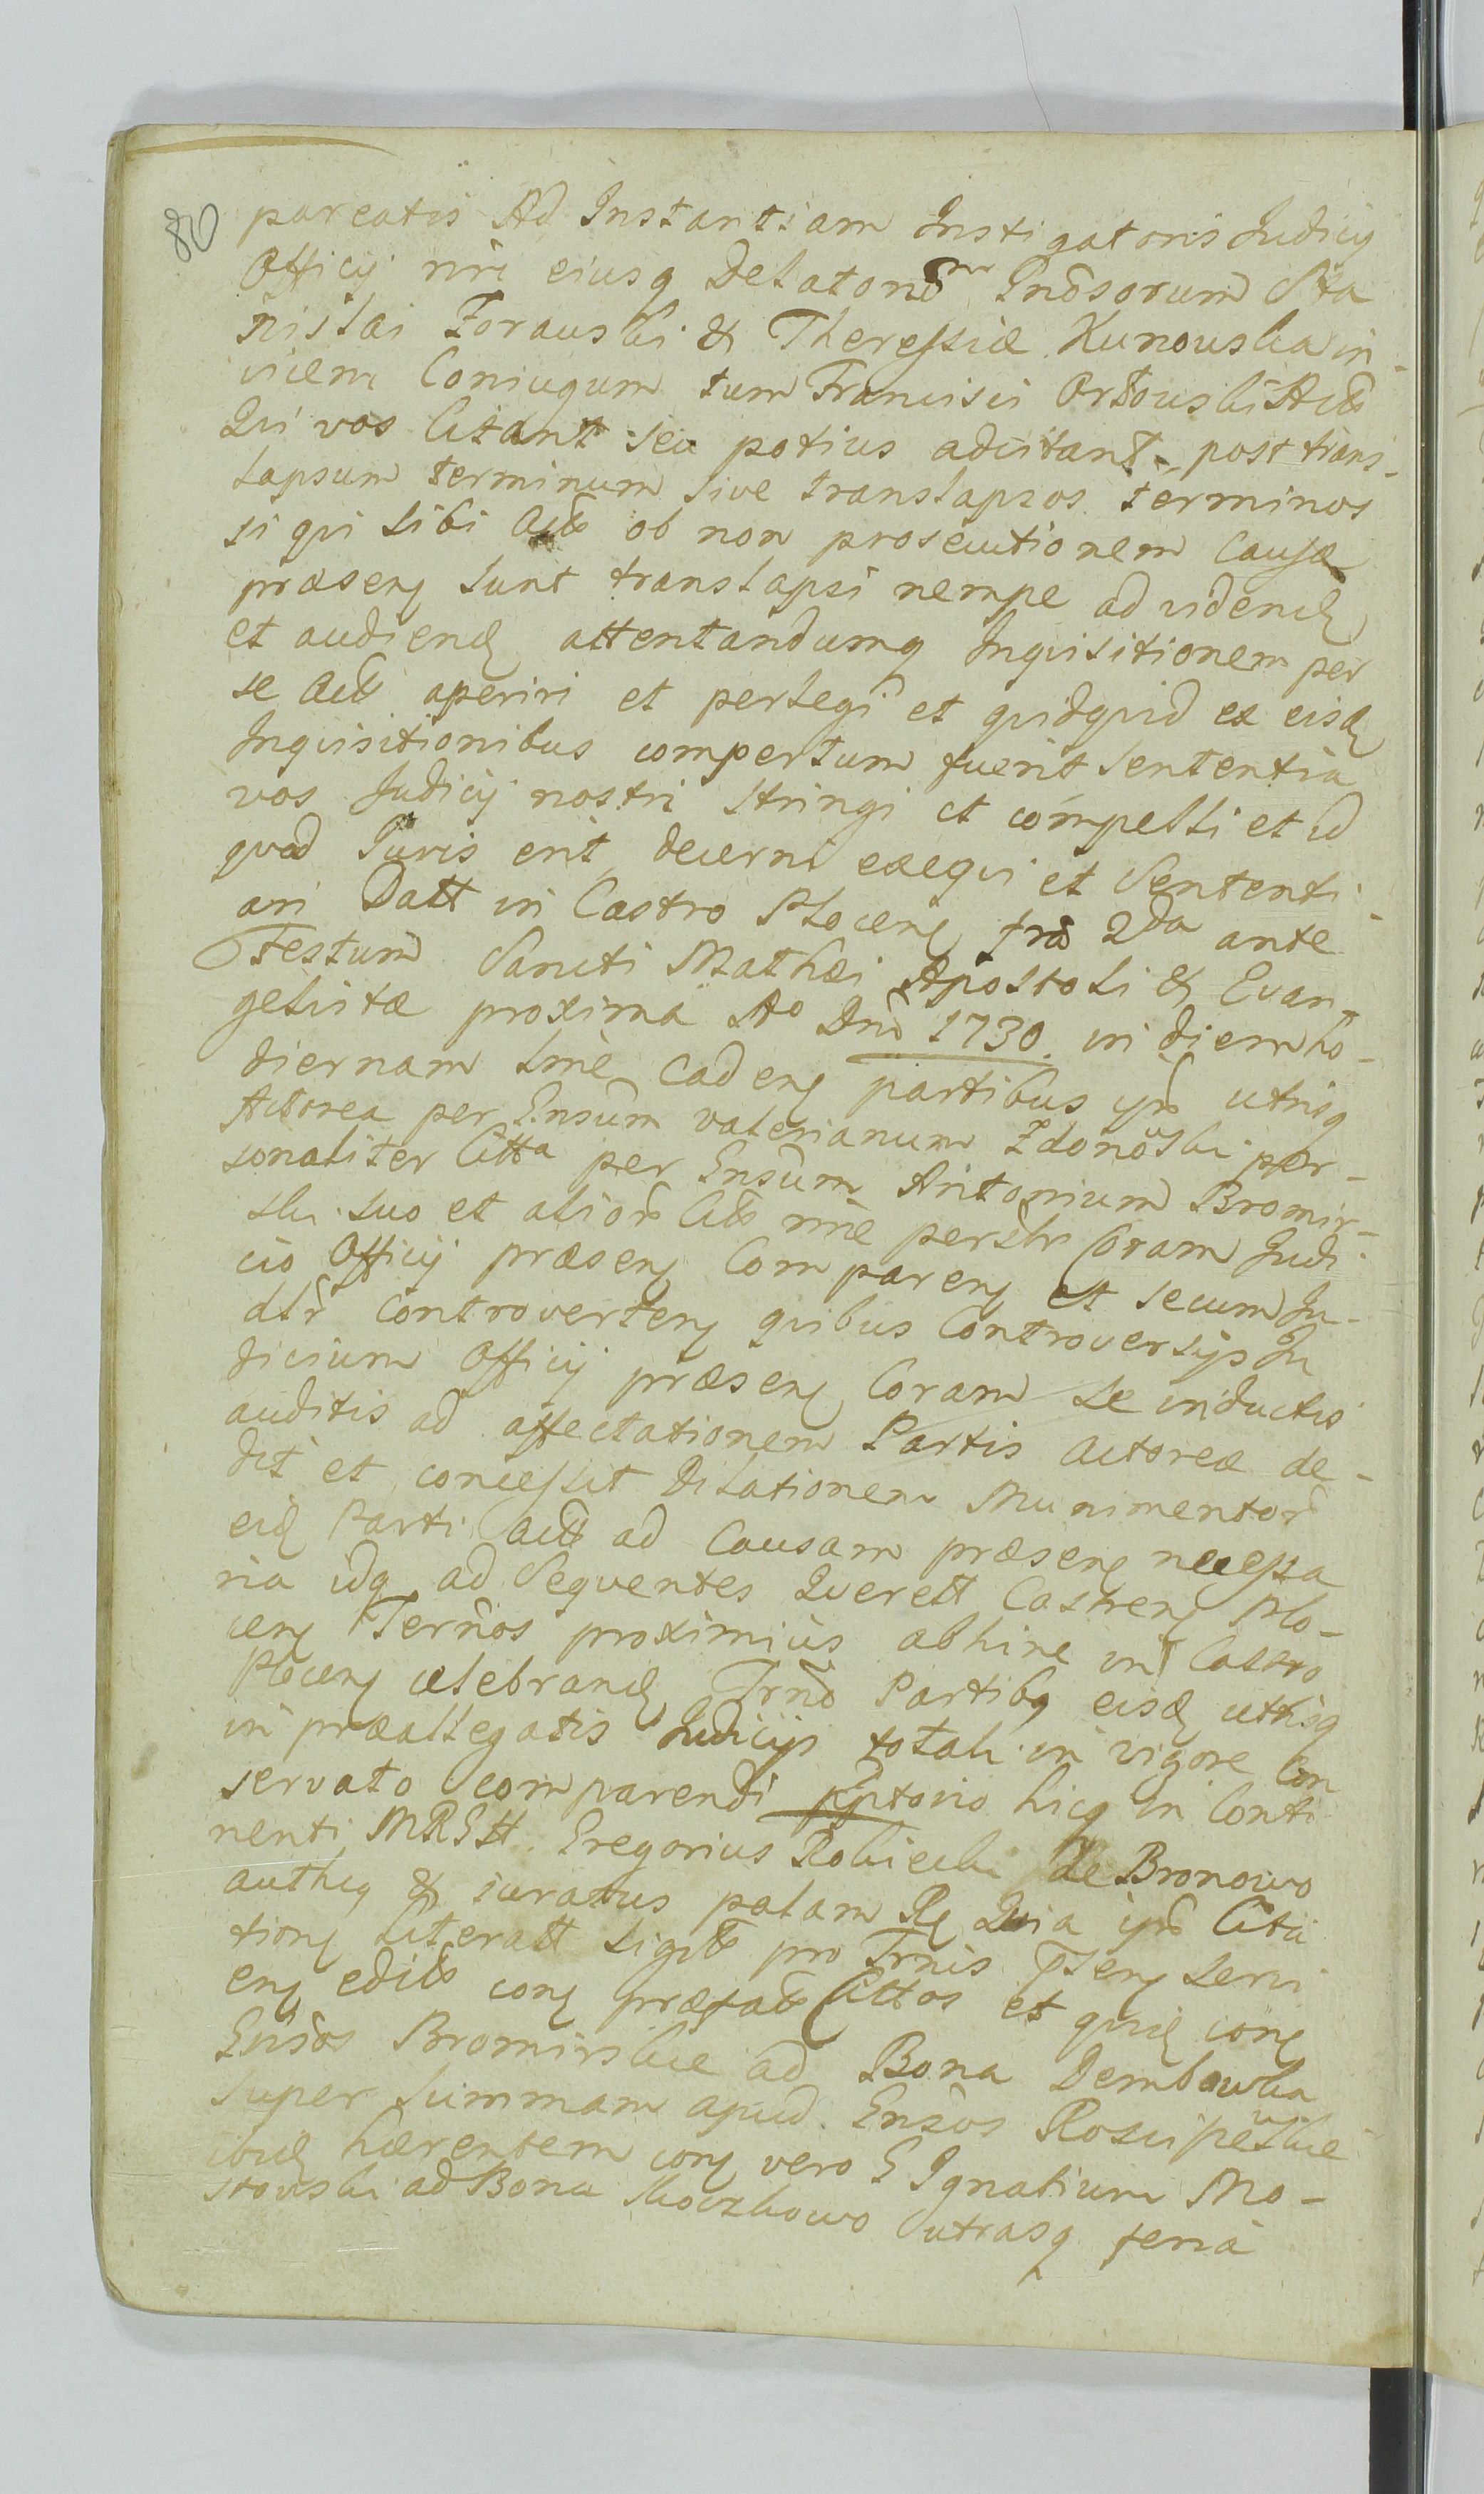 80
pareatis Ad Instantiam Instigatoris Judicij
Officij nri eiusq Delatorum Gnosorum Sta
nislai Zorauski & Theressiæ Kunouska in-
uicem Coniugum tum Francisci Ortouski Actt
Qui vos Citant seu potius adcitant post trans-
lapsum terminum sive translapsos terminos
si qui sibi Actt ob non prosecutionem Causæ
præsenꝭ sunt translapsi nempe ad videndꝭ
et audiendꝭ attentandumq Inquisitionem per
se Actt aperiri et perlegi et quidquid ex eisdꝭ
Inquisitionibus compertum fuerit Sententia
vos Judicij nostri stringi et compelli et id
quod Juris erit decerni exequi et Sententi-
ari Datt in Castro Plocenꝭ fra 2da ante
Festum Sancti Mathæi Apostoli & Evan-
gelistæ proxima Ao Dni 1730. in diem ho-
diernam sme cadenꝭ partibus ipis utrisq
Actorea per Gnsum valerianum Zdonoski per-
sonaliter Citta per Gnsum Antonium Bromir-
ski suo et alior Citt nne persltr Coram Judi-
cio Officij præsenꝭ Comparenꝭ et secum Ju-
dlr controvertenꝭ quibus Controversijs Ju
dicium Officij præsenꝭ Coram se inductis
auditis ad affectationem Partis actoreæ de-
dit et concessit Dilationem Munimentor
eidꝭ Parti Actt ad Causam præsenꝭ necessa
ria idq ad Sequentes Querell Castrenꝭ Plo-
cenꝭ Ternos proximius abhinc in Castro
Plocenꝭ celebrandꝭ Trno Partibq eisdꝭ utrisq
in præallegatis Judicijs totali in vigore Con
servato comparendi pfptorio hicq in Conti
nenti MRGtt Gregorius Robiecki de Bronowo
authꝭ & iuratus palam Rꝭ Quia ipe Cita
tionꝭ Literatt sigtt pro Trnis Tsenꝭ servi
enꝭ editt conꝭ præfatt Cittos et quidꝭ conꝭ
Gnsos Bromirskie ad Bona Dembowka
super summam apud Gnsos Roscipeskie
ibidꝭ hærentem conꝭ vero G Ignatium Mo-
stouski ad Bona Moczkowo utrasq feria